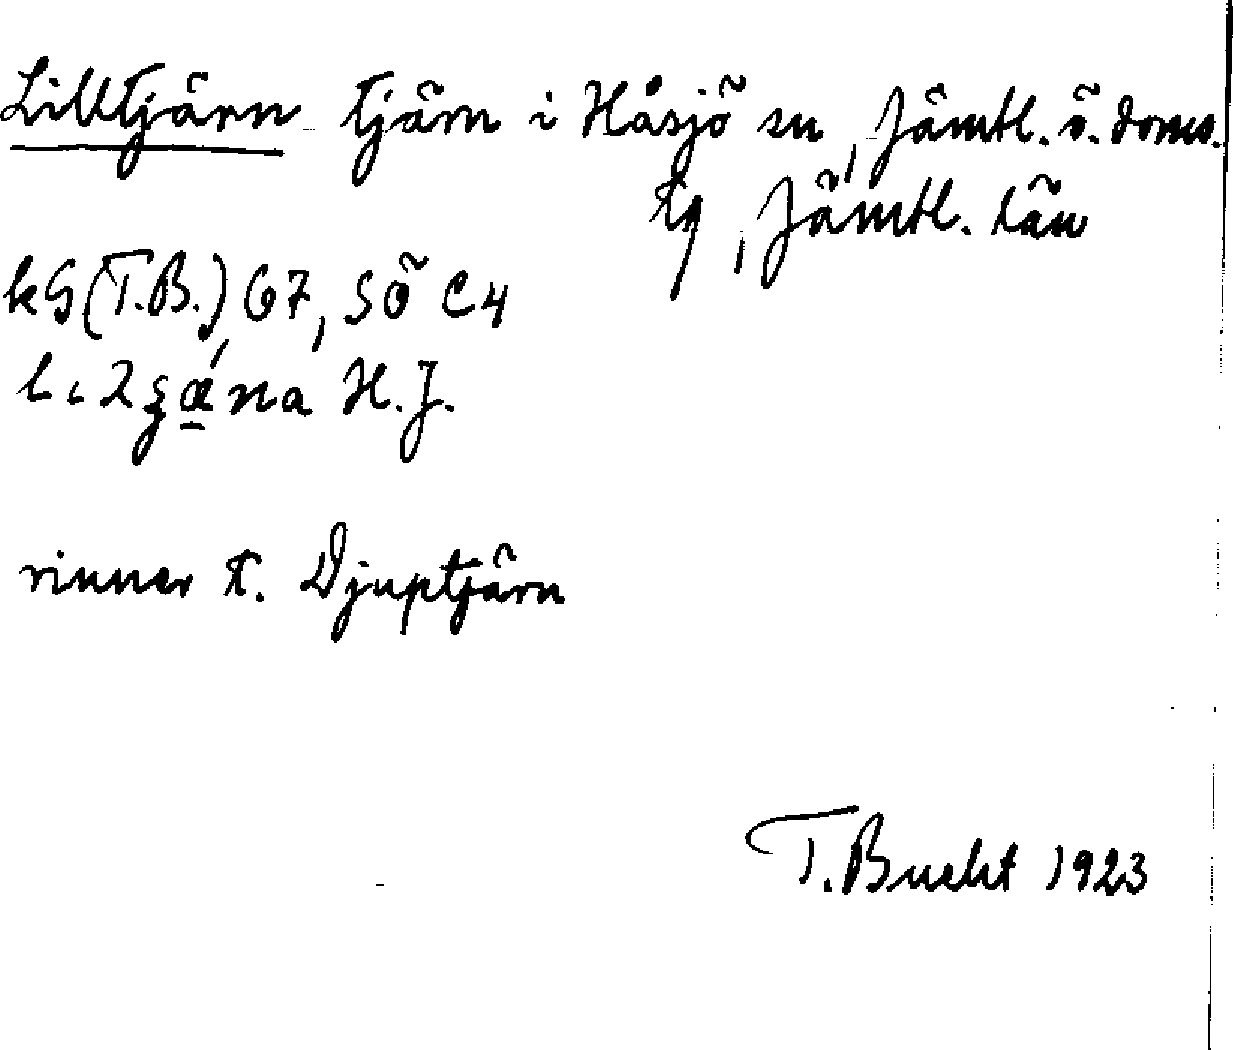 Lilltjärn tjärn i Håsjö sn, Jämtl. ö. doms.
tg, Jämtl. län
kG (T.B.) 67, SÖ C4
H.J.
rinner t. Djuptjärn
T. Bucht 1923